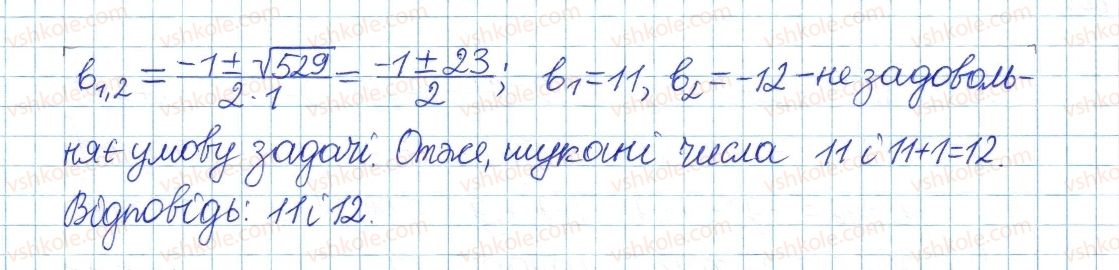 в₁,₂ = (-1 ± √529)/(2·1) = (-1 ± 23)/2; в₁ = 11, в₂ = -12 - не задоволь-
няє умову задачі. Отже, шукані числа 11 і 11+1=12.
Відповідь: 11 і 12.